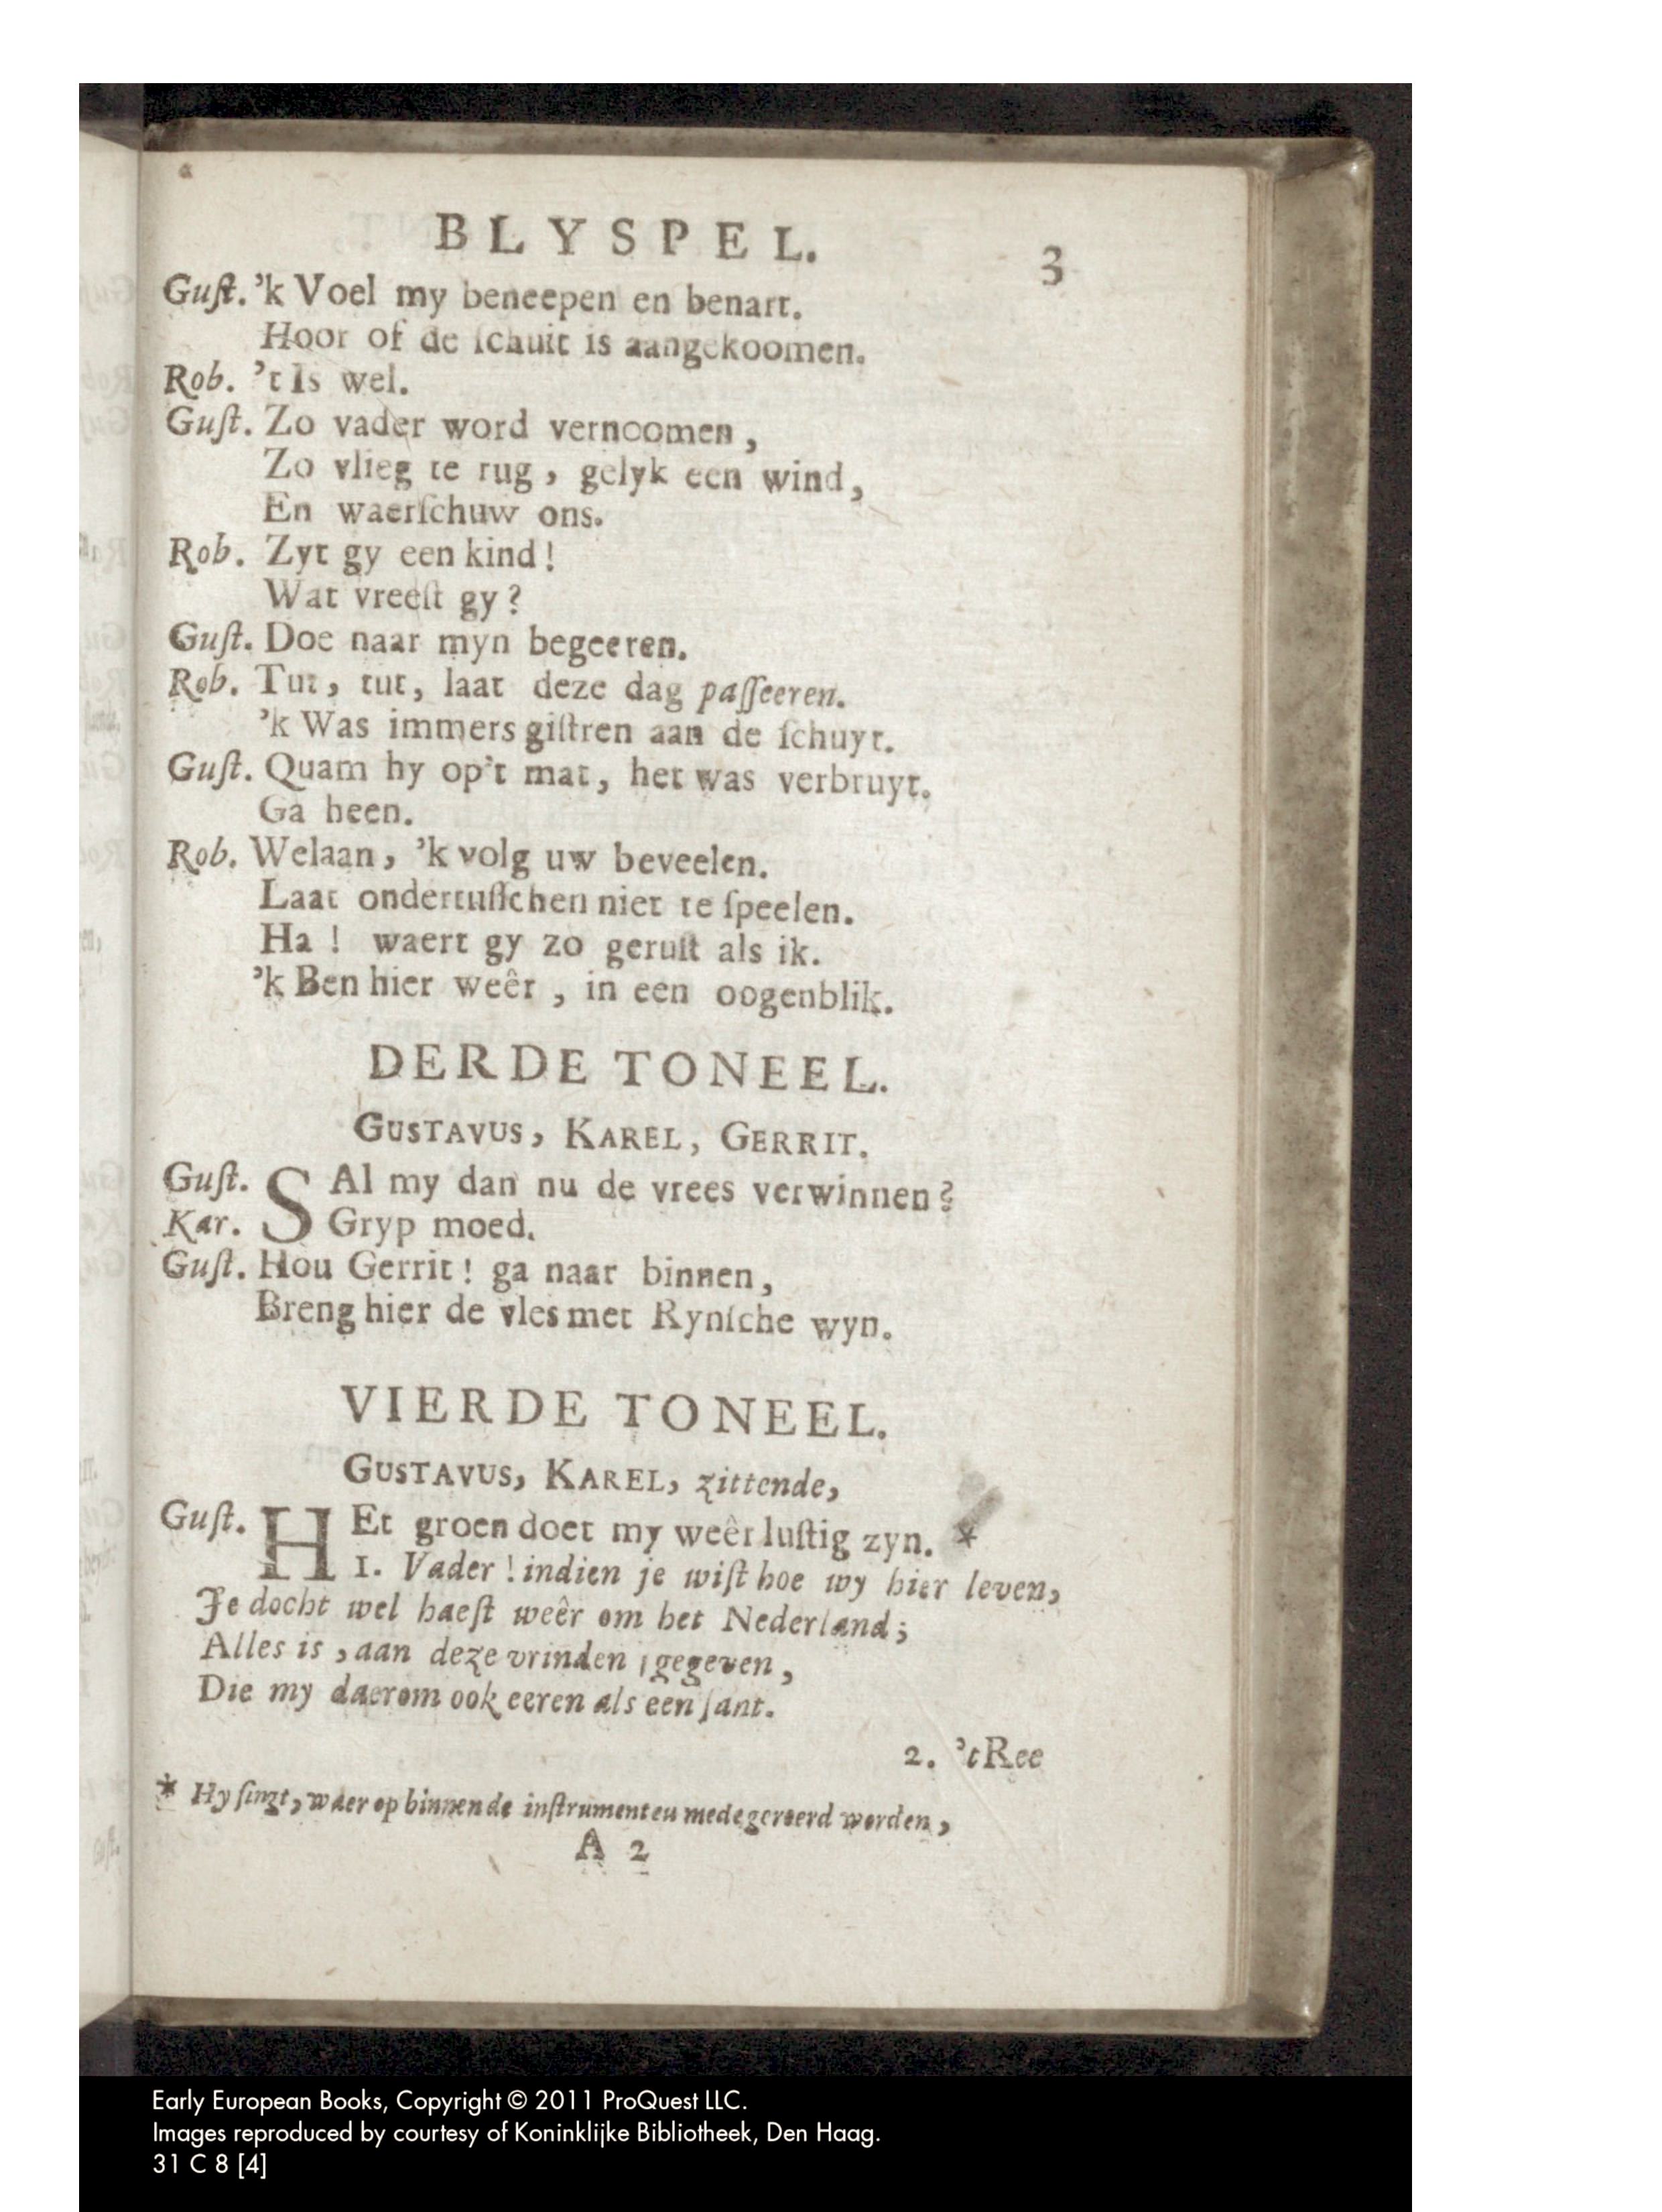 BLYSPEL.
3
Guſt. 'k Voel my beneepen en benart.
Hoor of de ſchuit is aangekoomen.
Rob. 't Is wel.
Guſt. Zo vader word vernoomen,
Zo vlieg te rug, gelyk een wind,
En waerſchuw ons.
Rob. Zyt gy een kind!
Wat vreeſt gy?
Guſt. Doe naar myn begeeren.
Rob. Tut, tut, laat deze dag paſſeeren.
'k Was immers giſtren aan de ſchuyt.
Guſt. Quam hy op't mat, het was verbruyt.
Ga heen.
Rob. Welaan, 'k volg uw beveelen.
Laat ondertuſſchen niet te ſpeelen.
Ha! waert gy zo geruſt als ik.
'k Ben hier weêr, in een oogenblik.
DERDE TONEEL.
GUSTAVUS, KAREL, GERRIT.
Guſt. SAl my dan nu de vrees verwinnen?
Kar. Gryp moed.
Guſt. Hou Gerrit! ga naar binnen,
Breng hier de vles met Rynſche wyn.
VIERDE TONEEL.
GUSTAVUS, KAREL, zittende,
Guſt. HEt groen doet my weêr luſtig zyn. *
1. Vader! indien je wiſt hoe wy hier leven,
Je docht wel haeſt weêr om het Nederland;
Alles is, aan deze vrinden, gegeven,
Die my daerom ook eeren als een ſant.
2. 't Ree
* Hy ſingt, waer op binnen de inſtrumenten mede geroerd worden,
A 2
Early European Books, Copyright © 2011 ProQuest LLC.
Images reproduced by courtesy of Koninklijke Bibliotheek, Den Haag.
31 C 8 [4]